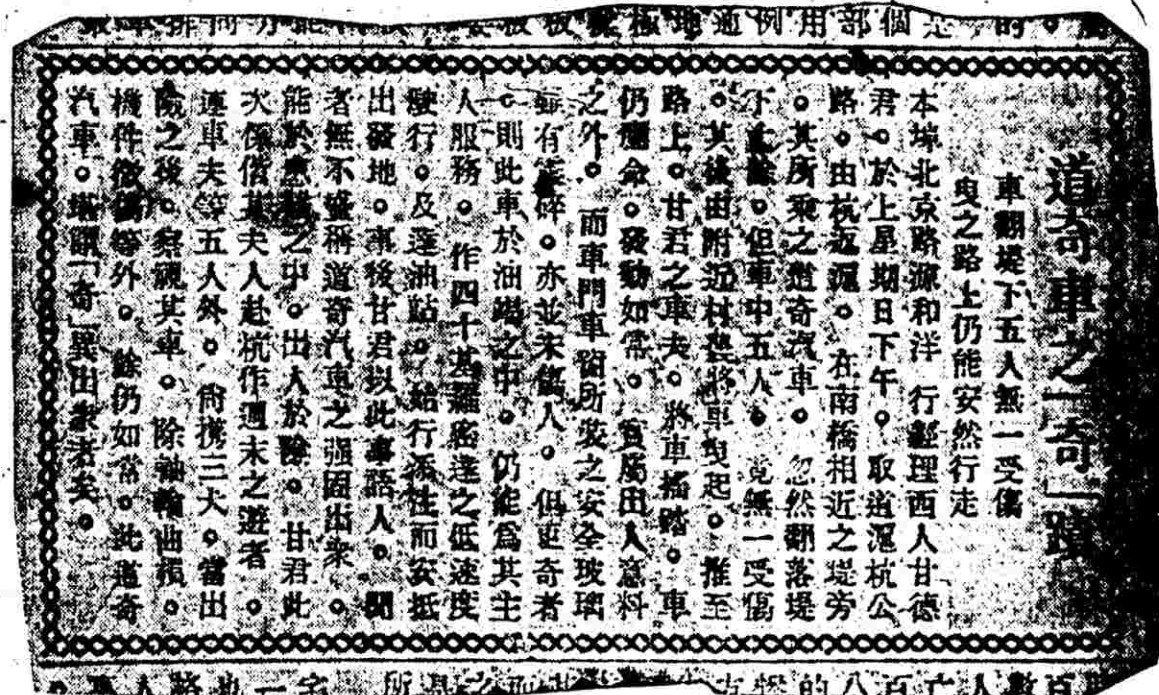 道奇車之「奇」蹟
車翻堤下五人無一受傷
曳之路上仍能安然行走
本埠北京路源和洋行經理西人甘德
君。於上星期日下午。取道滬杭公
路。由杭返滬。在南橋相近之堤旁
。其所乘之道奇汽車。忽然翻落堤
下。但車中五人。竟無一受傷
。其後由附近村農將車曳起。推至
路上。甘君之車夫。將車搖踏。車
仍應命。發動如常。實屬出人意料
之外。而車門車窗所裝之安全玻璃
雖有碎。亦並未傷人。但更奇者
。則此車於油竭之中。仍能為其主
人服務。作四十基羅密達之低速度
駛行。及達油站。始行添注而安抵
出發地。事後甘君以此事語人。聞
者無不盛稱道奇汽車之強固出衆。
能於之中。出人於險。甘君此
次係偕其夫人赴杭作週末之遊者。
連車夫等五人外。尚携三犬。當出
險之後。察視其車。除軸輪曲損。
機件微傷等外。餘仍如常。此道奇
汽車。堪謂「奇」異出衆者矣。